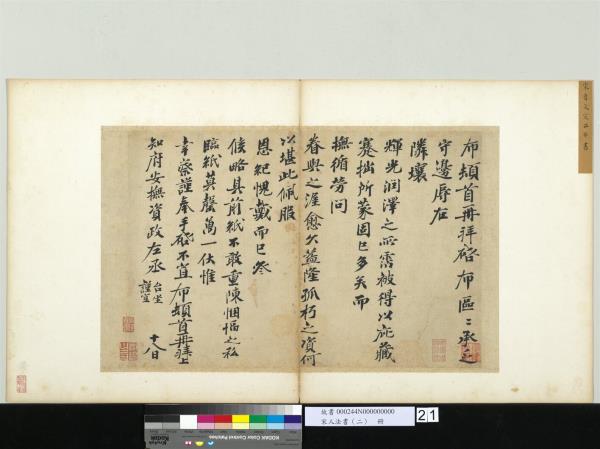 布頓首再拜啓布區〻承乏
守邊辱在
隣壤
輝光潤澤之所霑被得以庇藏
蹇拙所蒙固已多矣而
撫循勞問
眷與之渥愈久益隆孤朽之資何
以堪此佩服
恩紀愧戴而已參
候略具前紙不敢重陳悃愊之私
臨紙莫罄萬一伏惟
幸察謹奉手啓不宣布頓首再拜上
知府安撫資政左丞 台坐
謹空
十八日
故書 000244N000000000
宋人法書（二） 冊
21
Kodak
KODAK Color Control Patches